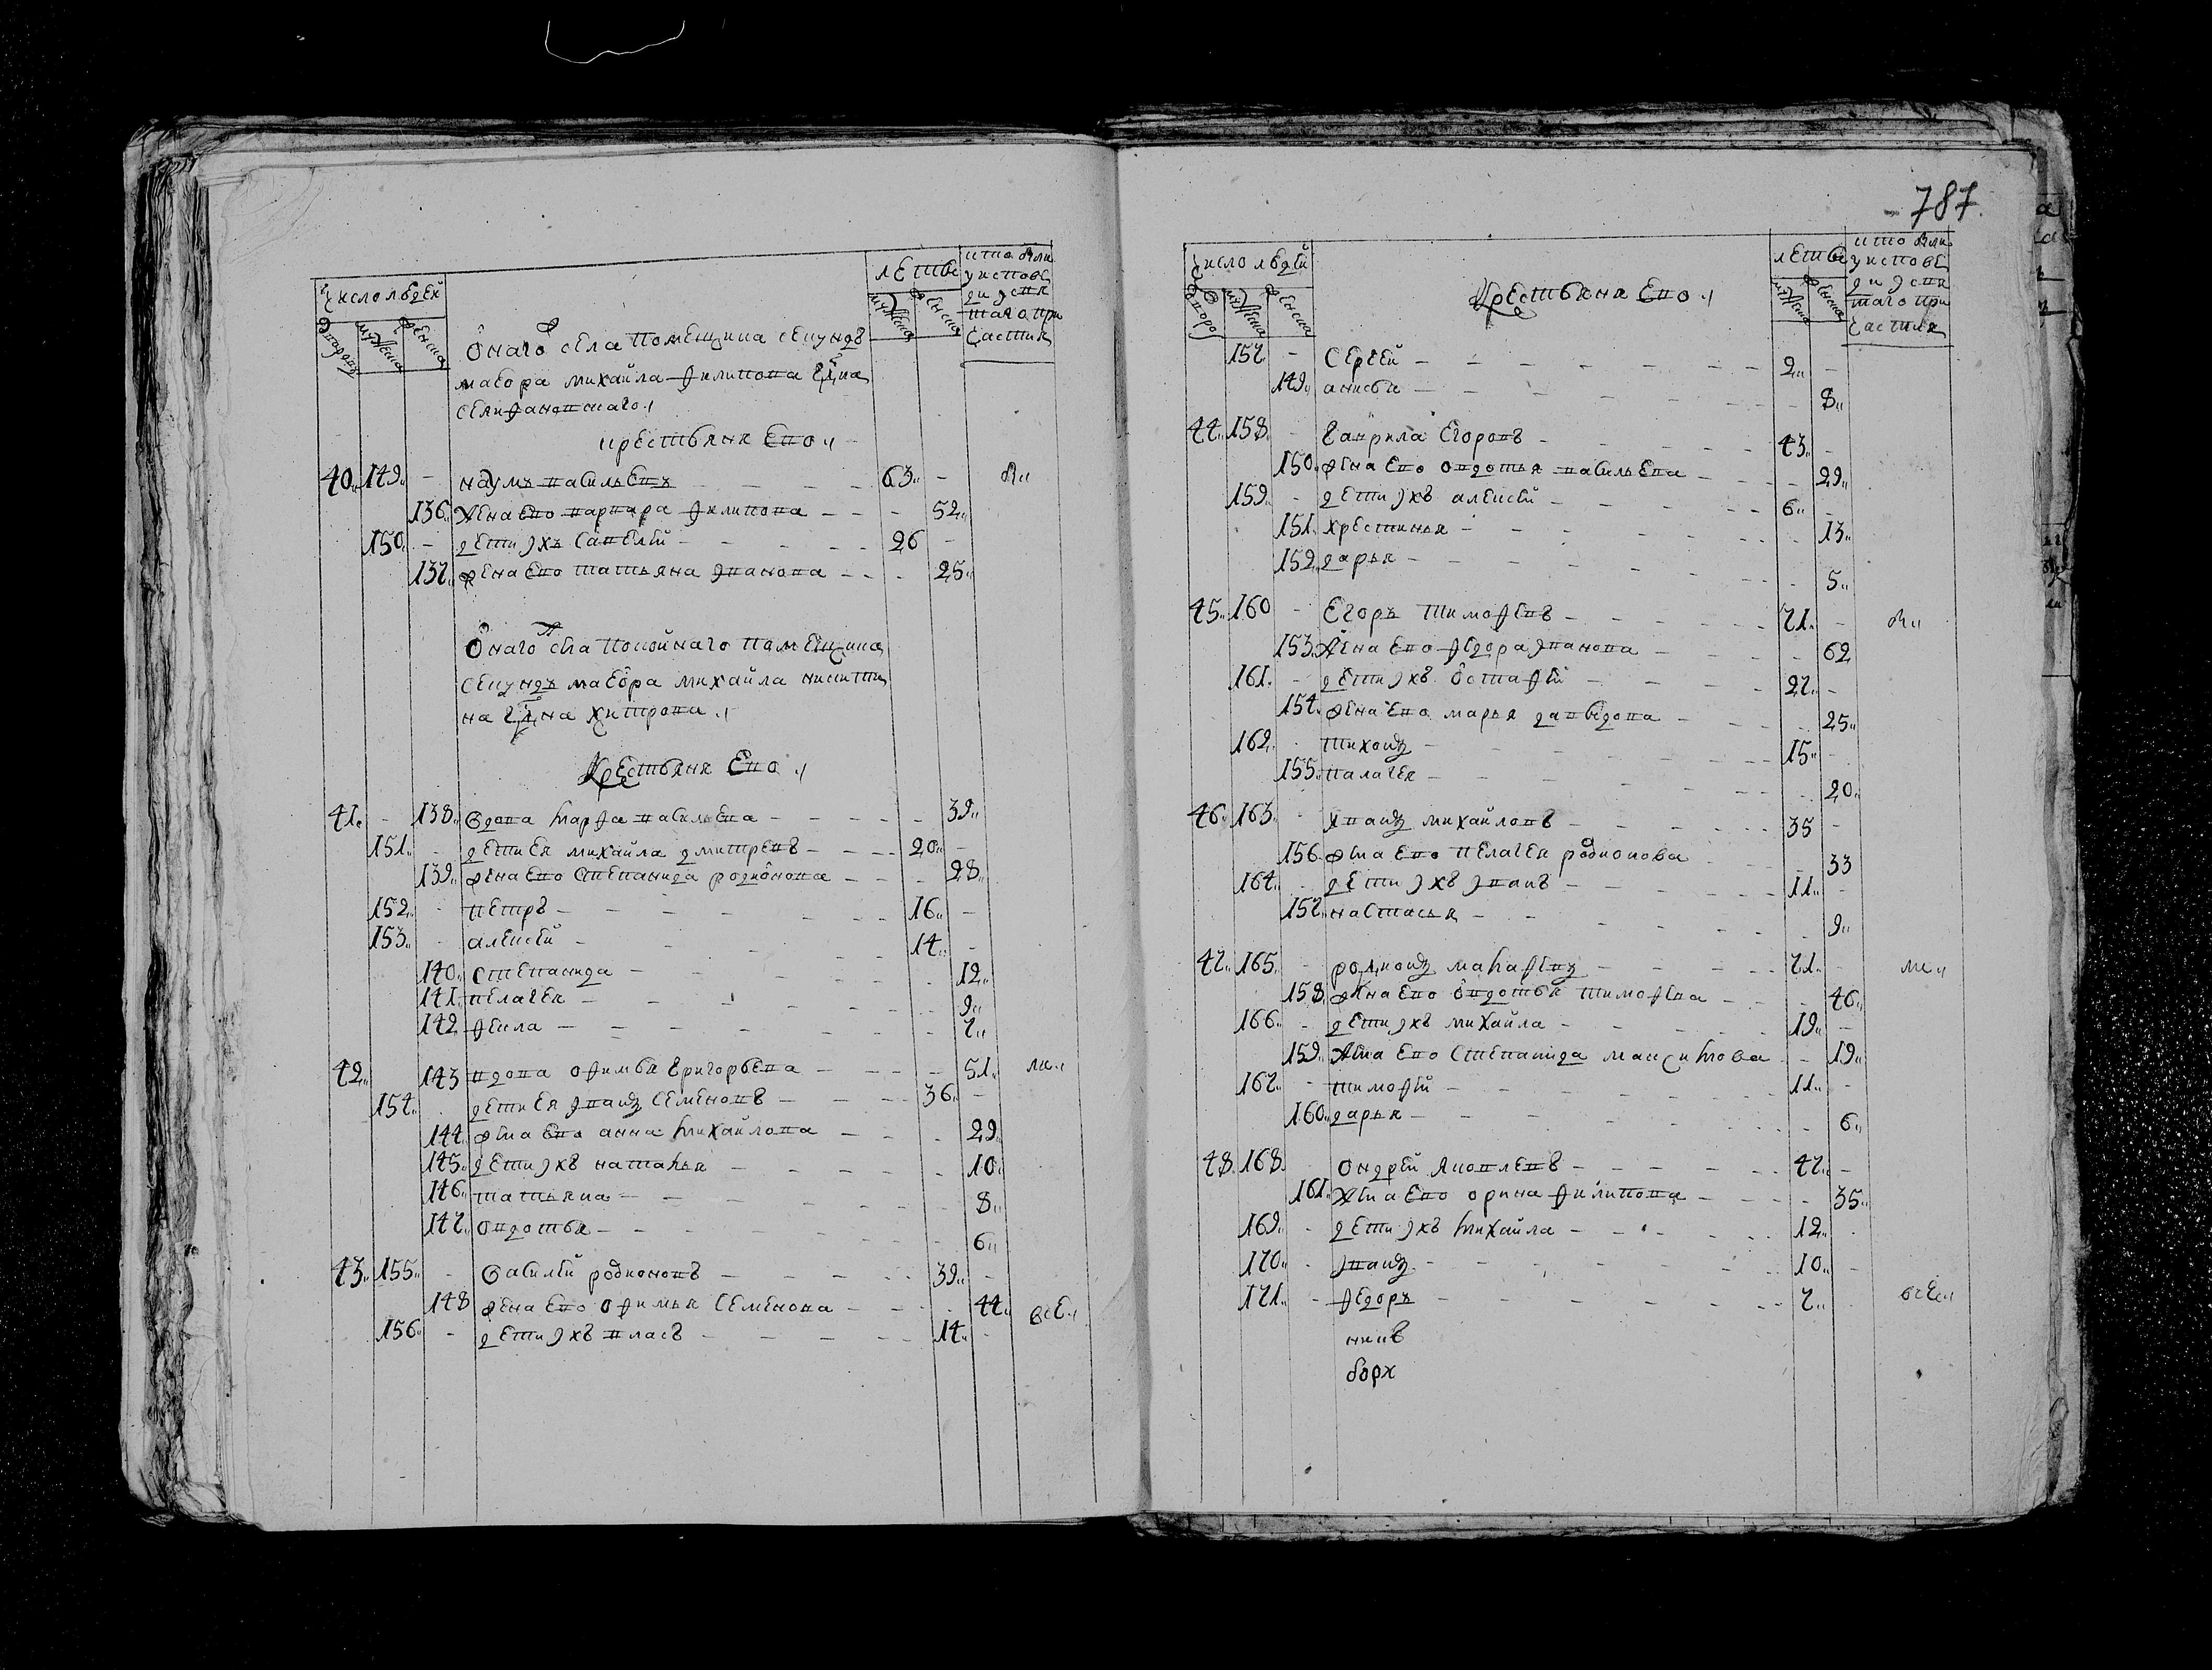 число людей
дворовъ
мужеска
женска
лѣтъ
мужеска
женска
кто были у исповеди и святаго причастия
Онаго села помещика секундъ
маеора михайла филипова г̃дна
селифановскаго
крестьяня ево
40 149 - наумъ васильевъ - 63 -
136 жена ево варвара филипова - - 52
150 - дети ихъ савелей - 26 -
137 жена ево татьяна иванова - - 25
Онаго села покойнаго помещика
секундъ маеора михайла никити
на г̃дна хитрова
Крестьяня Ево
41 - 138 вдова марфа васильева - - 39
151 - дети ея михайла дмитревъ - 20 -
139 жена ево степанида родионова - - 28
152 - петръ - 16 -
153 - алексей - 14 -
140 степанида - - 12
141 пелагея - - 9
142 фекла - - 7
42 143 вдова офимья григорьева - - 51
154 дети ея иванъ семеновъ - 36 -
144 жена ево анна михайлова - - 29
145 дети ихъ наталья - - 10
146 татьяна - - 8
147 овдотья - - 6
43 155 - василей родионовъ - 39 -
148 жена ево офимья семенова - - 44 все
156 - дети ихъ власъ - 14 -
787
число людей
дворо
мужеска
женска
Крестьяня Ево
лѣтъ
мужеска
женска
кто были у исповеди и святаго причастия
157 - сергей - 2 -
149 анисья - - 8
44 158 - гаврила егоровъ - 43 -
150 жена ево овдотья васильева - - 29
159 - дети ихъ алексей - 6 -
151 крестинья - - 13
152 дарья - - 5
45 160 - егоръ тимофеевъ - 71 -
153 жена ево федора иванова - - 62
161 - дети ихъ остафей - 27 -
154 жена ево марья давыдова - - 25
162 - тихонъ - 15 -
155 палагея - - 20
46 163 - иванъ михайловъ - 35 -
156 жена ево пелагея родионова - 33
164 - дети ихъ иванъ - 11 -
157 настасья - - 9
47 165 - родионъ макафевъ - 71 -
158 жена ево овдотья тимофева - - 46
166 - дети ихъ михайла - 19 -
159 жена ево степанида максимова - 19
167 - тимофей - 11 -
160 дарья - - 6
48 168 ондрей яковлевъ - 47 -
161 жена ево орина филипова - - 35
169 - дети ихъ михайла - 12
170 - иванъ - 10 -
171 - федоръ - 7 все